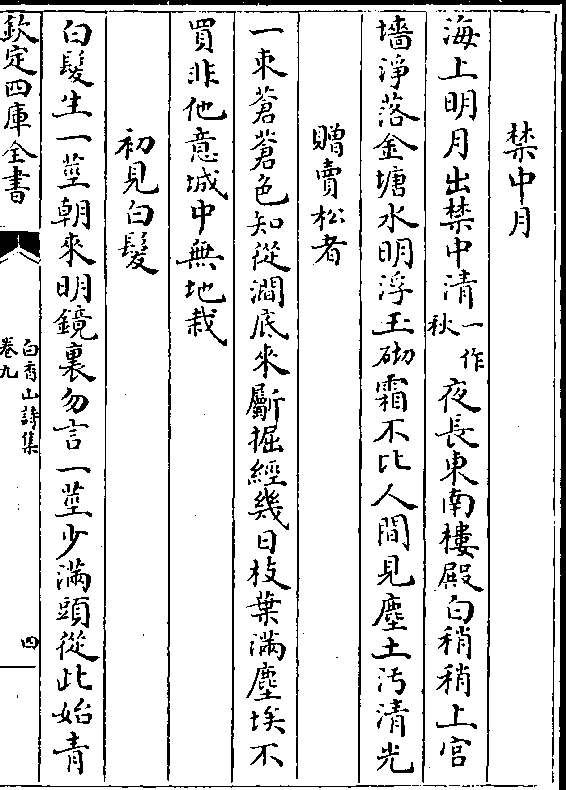 禁中月
海上明月出禁中清一作秋夜長東南樓殿白稍稍上宮
墻淨落金塘水明浮玉砌霜不比人間見塵土汚清光
贈賣松者
一束蒼蒼色知從澗底來斸掘經幾日枝葉滿塵埃不
買非他意城中無地栽
初見白髮
白髮生一莖朝來明鏡裏勿言一莖少滿頭從此始青
欽定四庫全書
白香山詩集
卷九
四